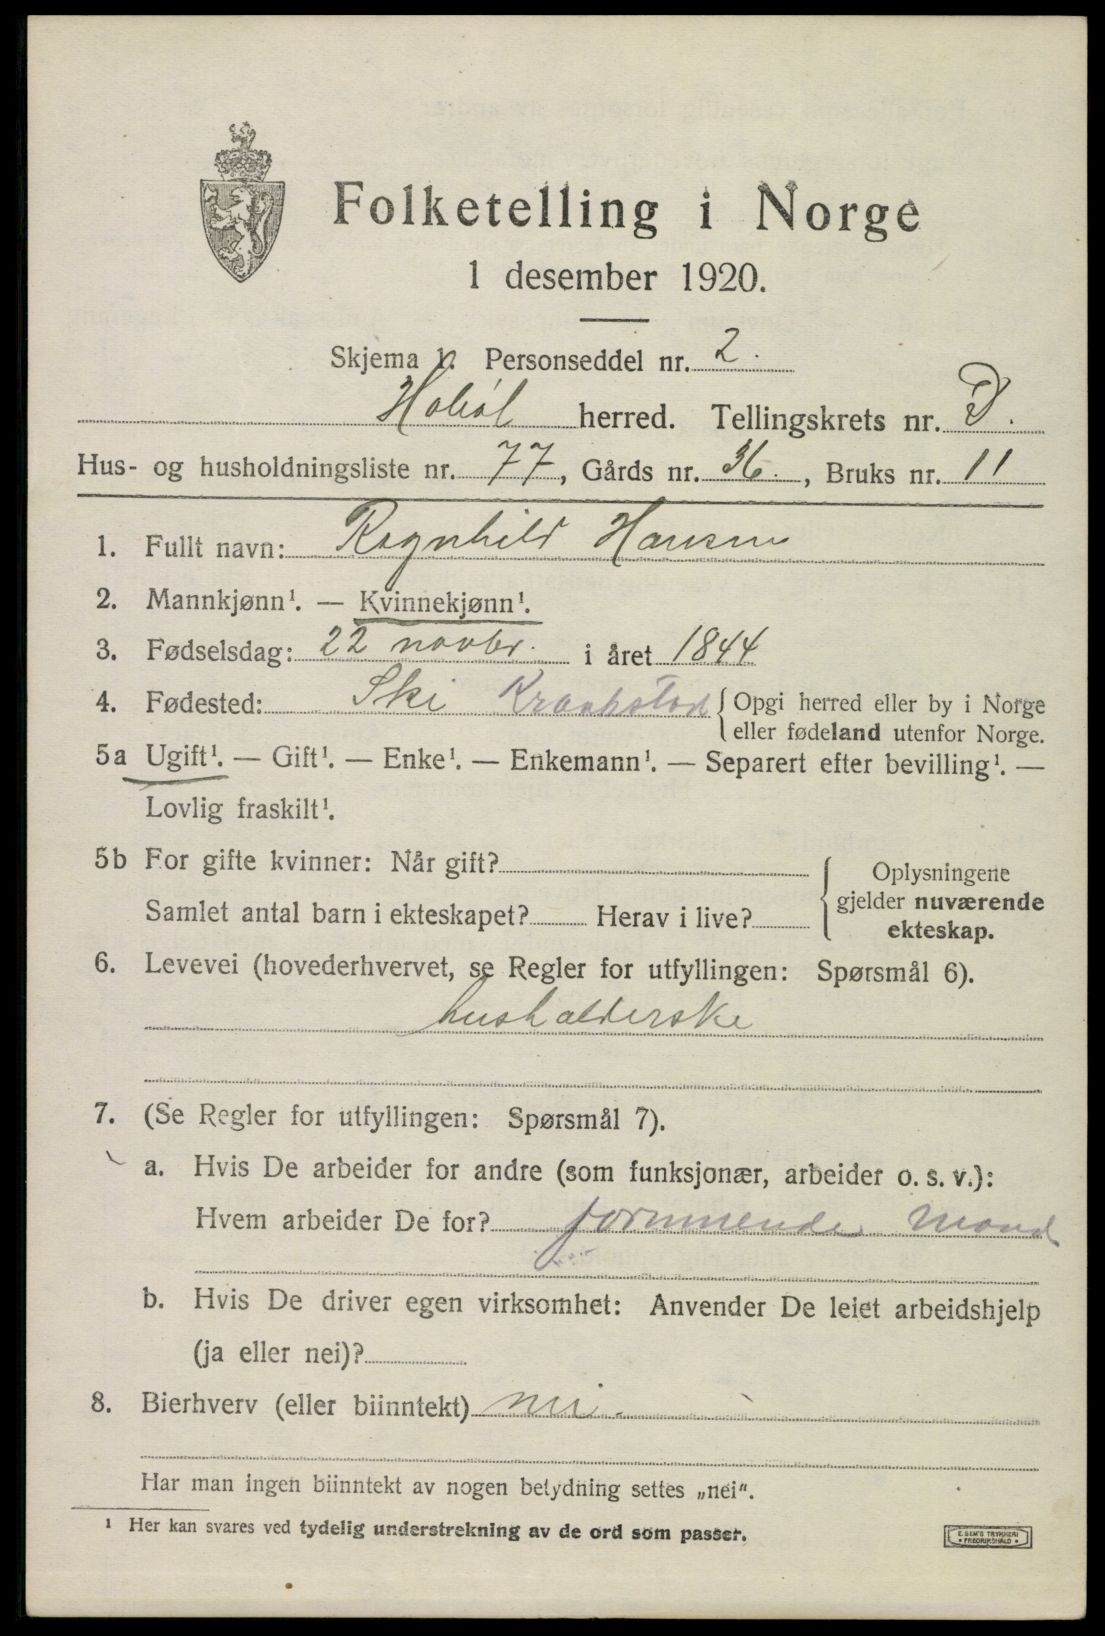 Folketelling i Norge
1 desember 1920.
Skjema V. Personseddel nr. 2.
Hobøl herred. Tellingskrets nr. D.
Hus- og husholdningsliste nr. 77, Gårds nr. 36., Bruks nr. 11
1. Fullt navn: Ragnhild Hansen
2. Mannkjønn¹. — Kvinnekjønn¹.
3. Fødselsdag: 22 novbr. i året 1844
4. Fødested: Ski Kraakstad { Opgi herred eller by i Norge
eller fødeland utenfor Norge.
5a Ugift¹. — Gift¹. — Enke¹. — Enkemann¹. — Separert efter bevilling¹. —
Lovlig fraskilt¹.
5b For gifte kvinner: Når gift?
Samlet antal barn i ekteskapet? Herav i live?
{ Oplysningene
gjelder nuværende
ekteskap.
6. Levevei (hovederhvervet, se Regler for utfyllingen: Spørsmål 6).
husholderske
7. (Se Regler for utfyllingen: Spørsmål 7).
a. Hvis De arbeider for andre (som funksjonær, arbeider o. s. v.):
Hvem arbeider De for? formmende Mand
b. Hvis De driver egen virksomhet: Anvender De leiet arbeidshjelp
(ja eller nei)?
8. Bierhverv (eller biinntekt) nei.
Har man ingen biinntekt av nogen betydning settes „nei".
¹ Her kan svares ved tydelig understrekning av de ord som passer.
E. SEM'S TRYKKERI
• FREDRIKSHALD •